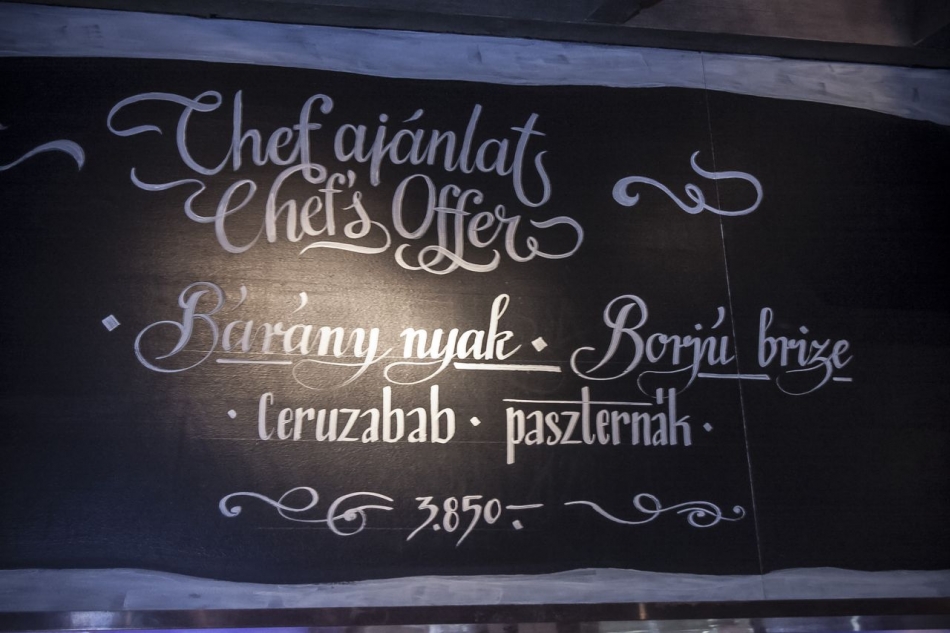 Chef ajánlat
Chef's Offer
Bárány nyak · Borjú brize
· Ceruzabab · paszternák ·
3.850.-